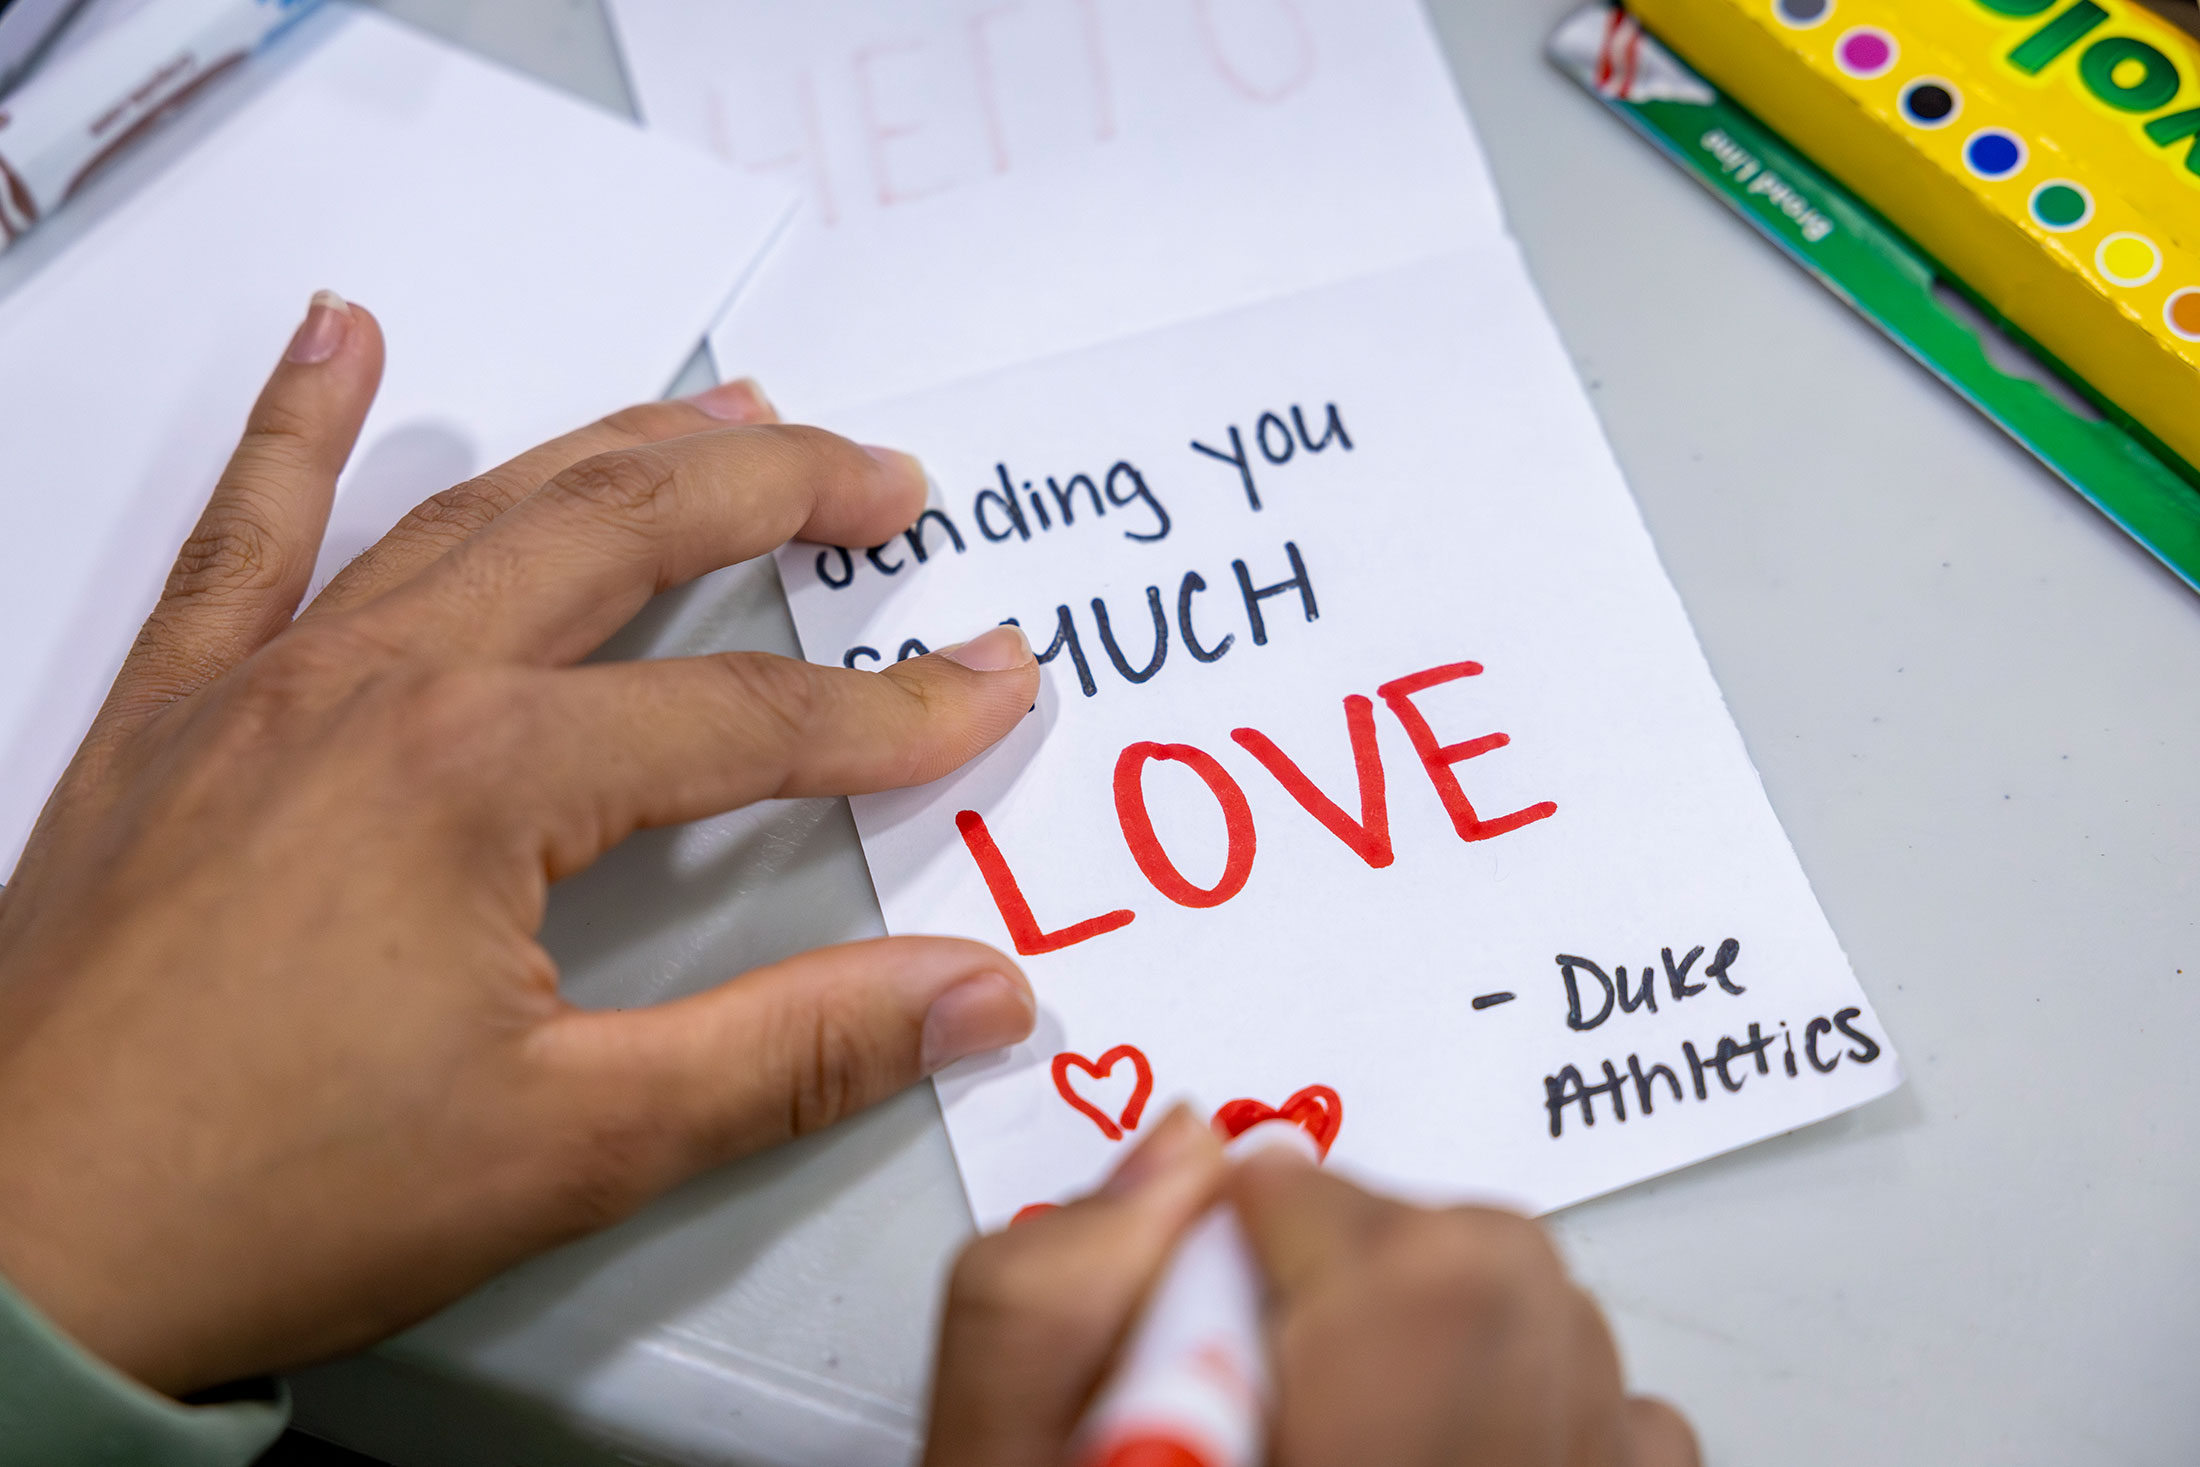 HELLO
Sending you
so MUCH
LOVE
- Duke
Athletics
Broad Line